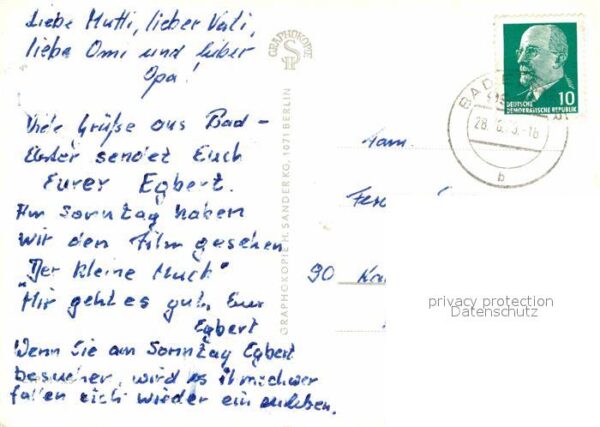 Liebe Mutti, lieber Vati,
liebe Omi und lieber
Opa!
Viele Grüße aus Bad-
Elster sendet Euch
Eurer Egbert.
Am Sonntag haben
wir den Film gesehen
"Der kleine Muck"
Mir geht es gut, Euer
Egbert
Wenn Sie am Sonntag Egbert
besuchen, wird es ihm schwer
fallen sich wieder ein
GRAPHOKOPIE
GRAPHOKOPIE H. SANDER KG, 1071 BERLIN
Fam.
90
DEUTSCHE
DEMOKRATISCHE REPUBLIK
10
BAD
b
privacy protection
Datenschutz